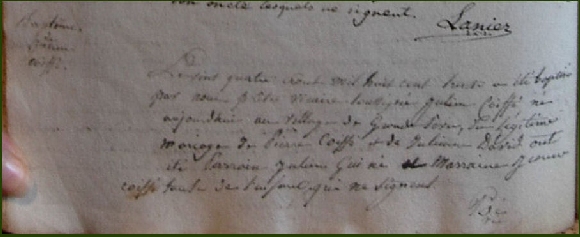 son oncle lesquels ne signent.
Lanier
Baptême
de
Julien
Coiffé.
Le vint quatre août mil huit cent trente a été baptisé
par nous prêtre vicaire soussigné Julien Coiffé né
aujourdhui au village de du légitime
mariage de Pierre Coiffé et de Julienne David ont
été Parrain Julien Marraine
coiffé tante de l'enfant qui ne signent